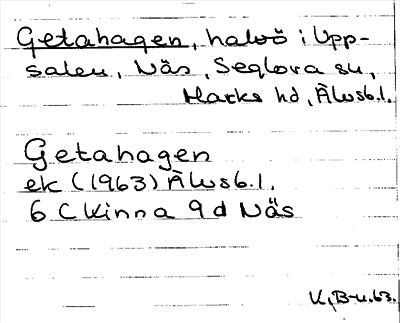 Getahagen, halvö i Upp-
salen, Näs, Seglora sn,
Marks hd, Älvsb.l.
Getahagen
ek (1963) Älvsb.l.
6 C Kinna 9 d Näs